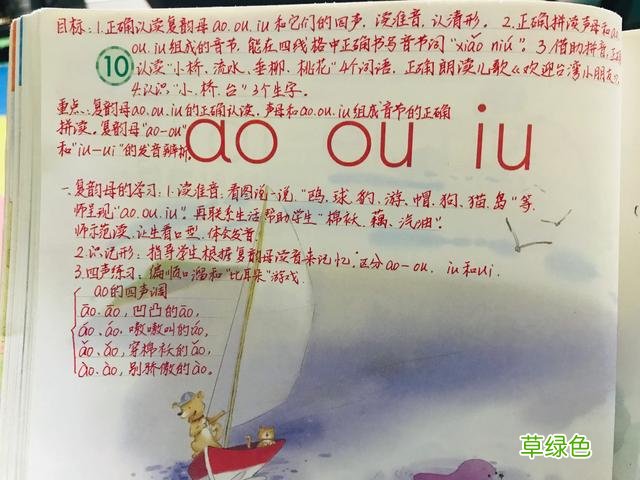 目标：1.正确认读复韵母ao、ou、iu和它们的四声，读准音，认清形。 2.正确拼读声母和ao
ou、iu组成的音节，能在四线格中正确书写音节词“xiǎo niú”。 3.借助拼音，正确
10
认读“小桥、流水、垂柳、桃花”4个词语，正确朗读儿歌《欢迎台湾小朋友》
4.认识“小、桥、台”3个生字。
重点：复韵母ao、ou、iu的正确认读，声母和ao、ou、iu组成音节的正确
拼读。复韵母“ao-ou”
和“iu-ui”的发音辨析。
ao ou iu
一、复韵母的学习：1.读准音：看图说一说，“鸥、球、豹、游、帽、狗、猫、岛”等，
师呈现“ao、ou、iu”，再联系生活帮助学生“棉袄、藕、汽油”。
师示范读，让生看口型，体会发音。
2.识记形：指导学生根据复韵母读音来记忆，区分ao-ou、iu和ui。
3.四声练习：编顺口溜和“比耳朵”游戏
ao的四声调
āo、āo，凹凸的āo，
áo、áo，嗷嗷叫的áo，
ǎo、ǎo，穿棉袄的ǎo，
ào、ào，别骄傲的ào。
草绿色